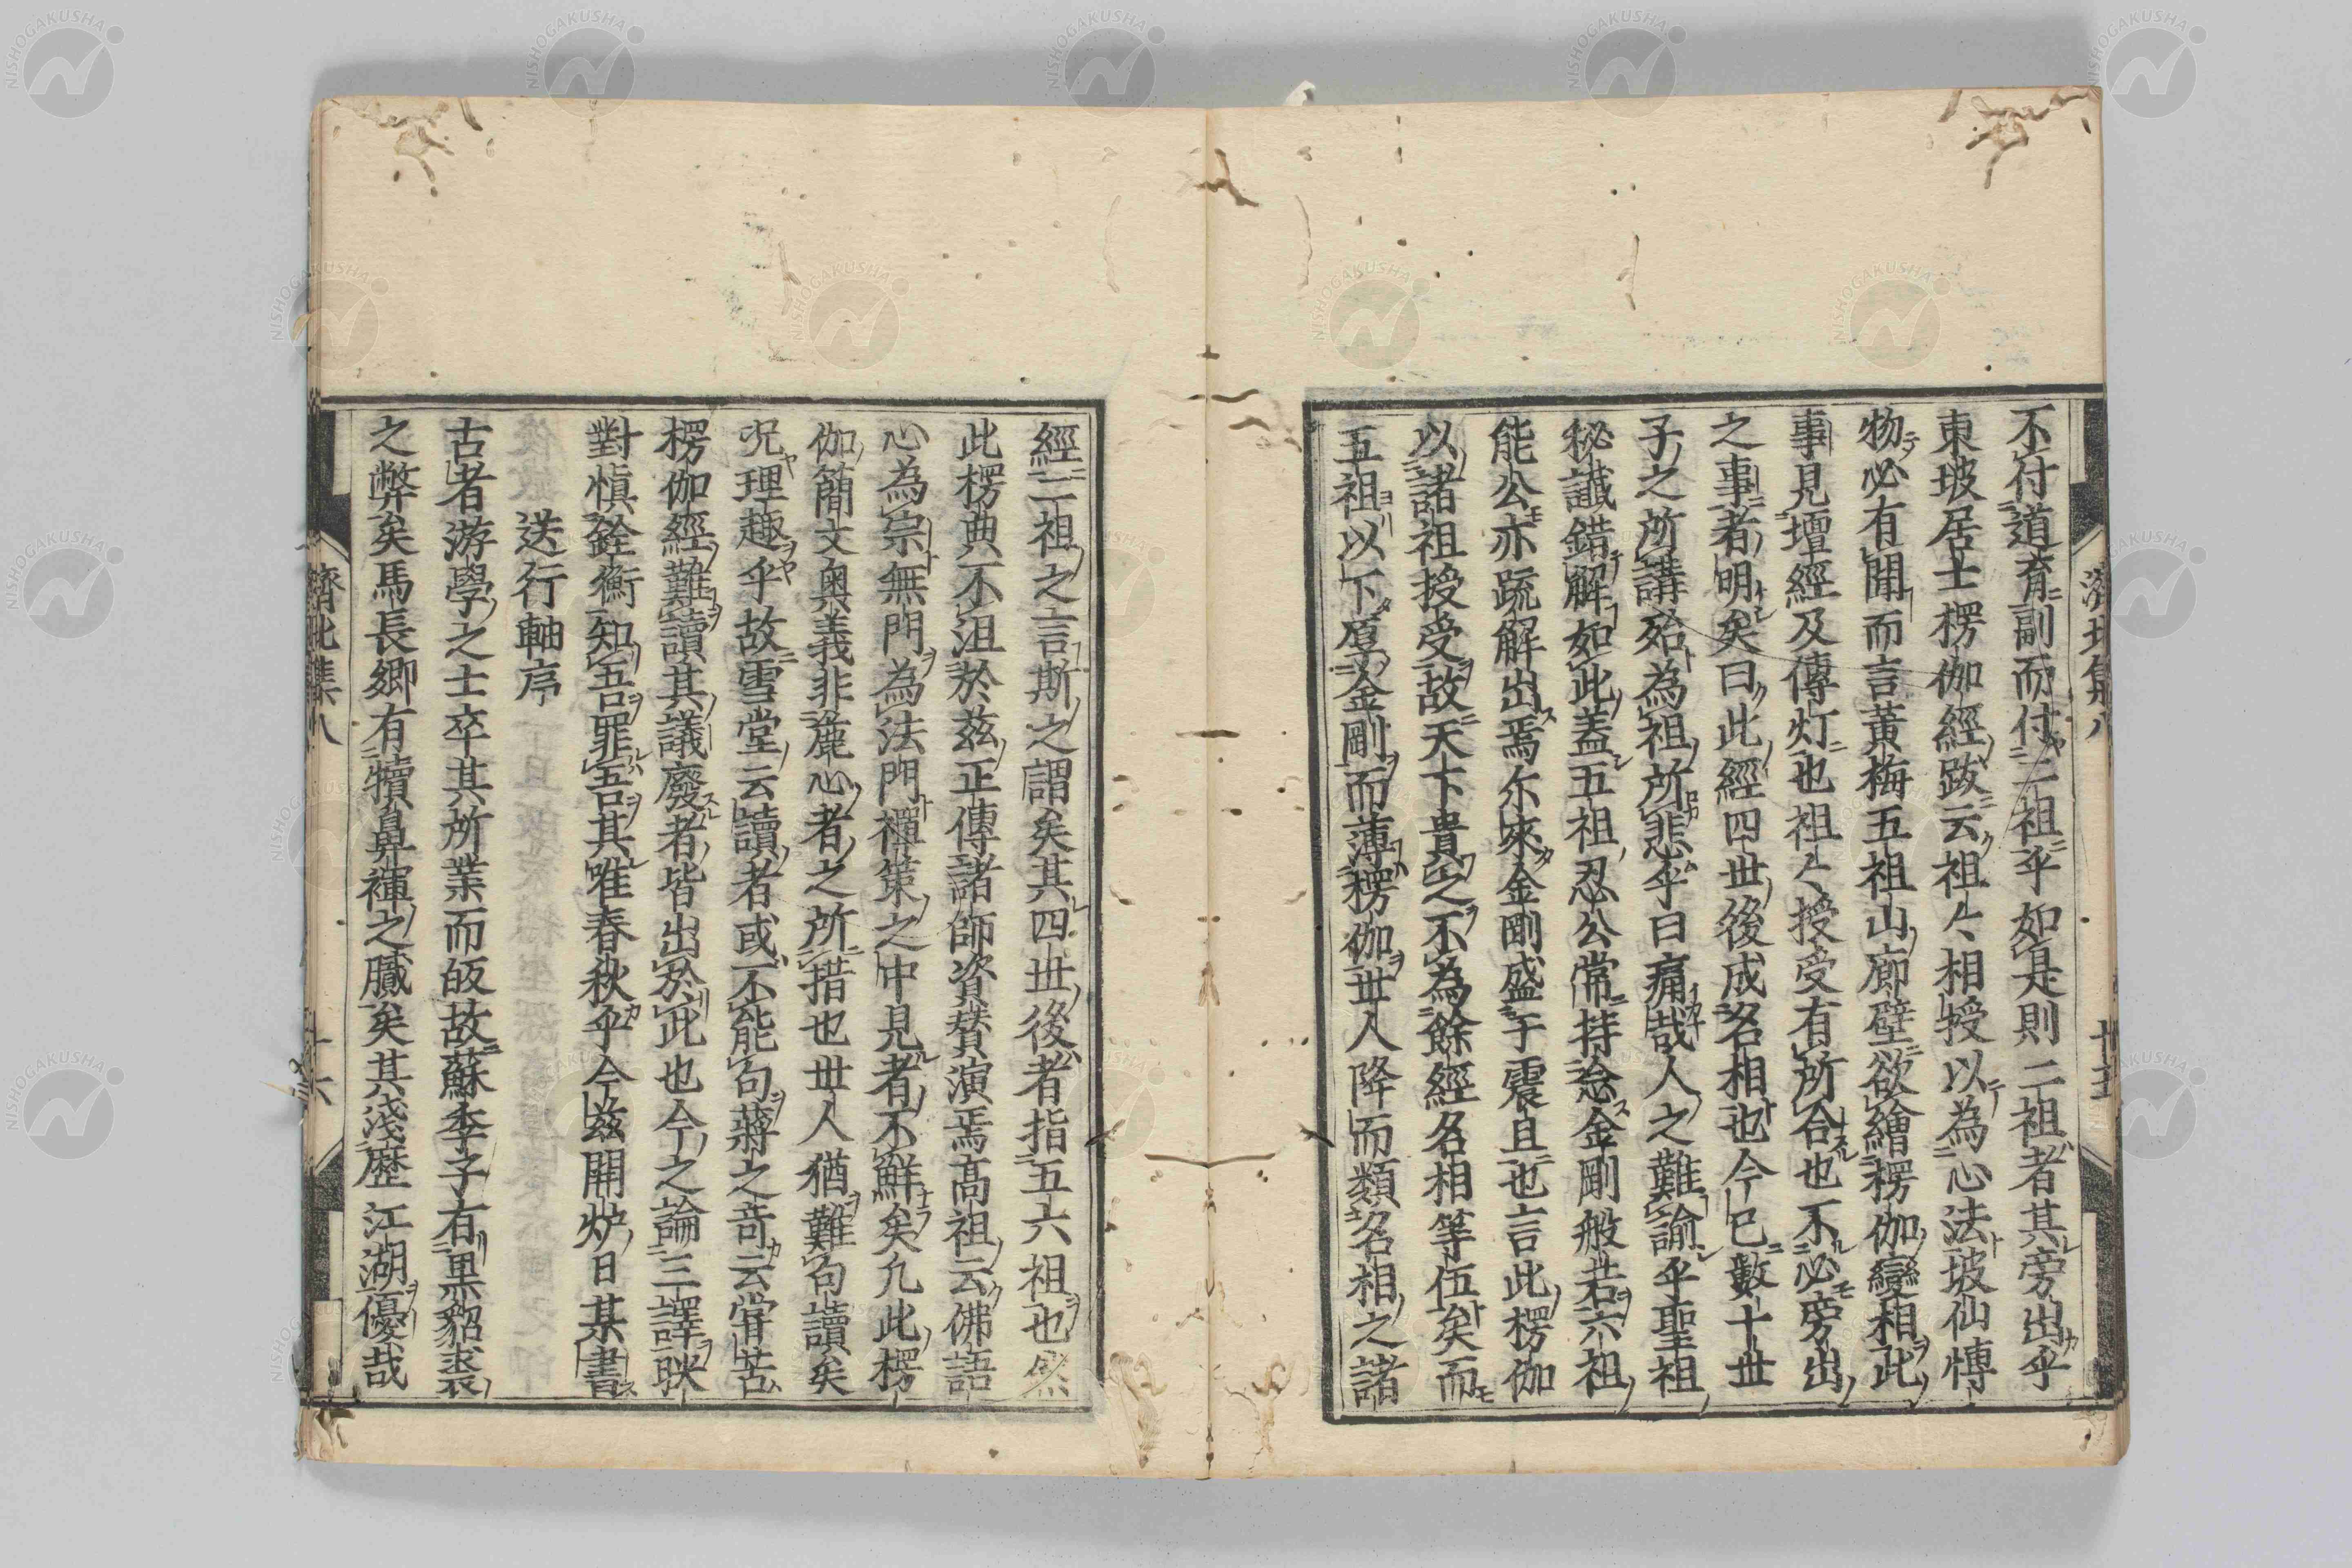 不付道育副而付二祖乎如是則二祖者其旁出乎
東坡居士楞伽經跋云祖々相授以為心法坡仙博
物必有聞而言黃梅五祖山廊壁欲繪楞伽變相此
事見壇經及傳灯也祖々授受有所合也不必旁出
之事者明矣曰此經四世後成名相也今已數十世
子之所講殆為祖所悲乎曰痛哉人之難諭乎聖祖
秘讖錯解如此蓋五祖忍公常持念金剛般若六祖
能公亦疏解出焉尓來金剛盛于震旦也言此楞伽
以諸祖授受故天下貴之不為餘經名相等伍矣而
五祖以下厚金剛而薄楞伽世人降而類名相之諸
濟北集八
十五
經二祖之言斯之謂矣其四世後者指五六祖也然
此楞典不沮於茲正傳諸師資賛演焉高祖云佛語
心為宗無門為法門禪策之中見者不鮮矣凢此楞
伽簡文奧義非麁心者之所措也世人猶難句讀矣
况理趣乎故雪堂云讀者或不能句蔣之奇云甞苦
楞伽經難讀其議廢者皆出於此也今之論三譯耿
對愼銓衡知吾罪吾其唯春秋乎今茲開炉日某書
送行軸序
古者游學之士卒其所業而皈故蘇季子有黒貂裘
之弊矣馬長卿有犢鼻褌之臟矣其淺歴江湖優哉
濟北集八
十六
NISHOGAKUSHA